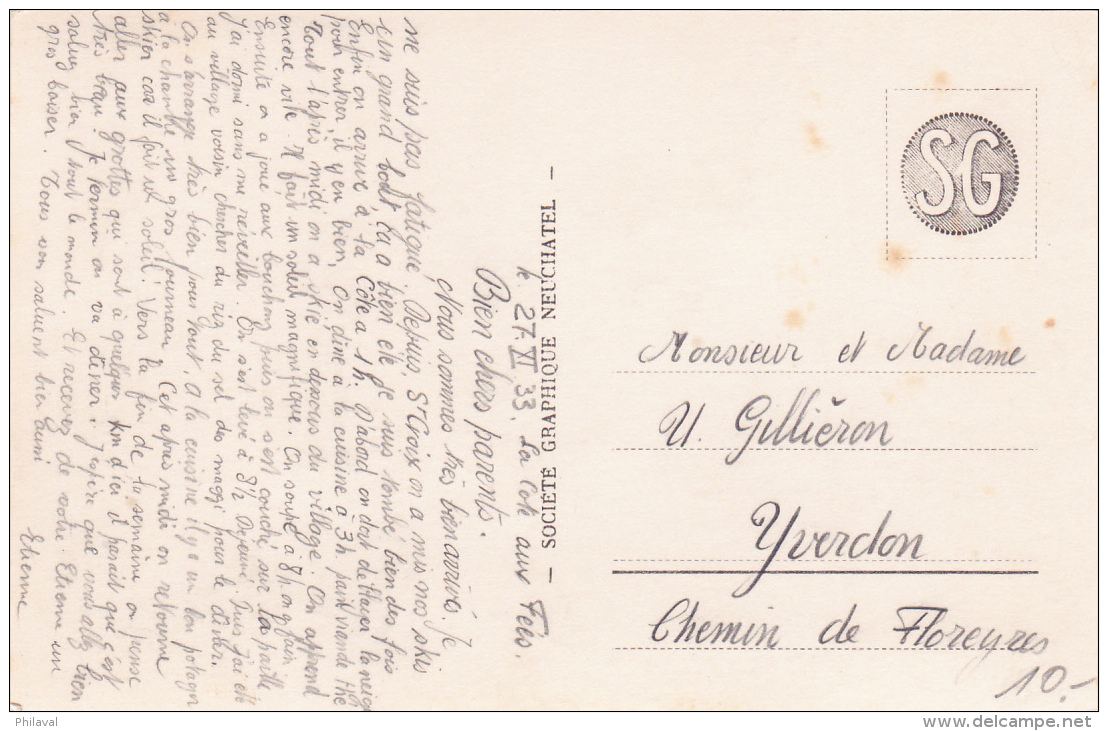 le 27.XII.33. La Côte aux Fées.
Bien chers parents.
Nous sommes très bien arrivé. Je
ne suis pas fatigué. Depuis St Croix on a mis nos skis
un grand bout, ça a bien été je suis tombé bien des fois
Enfin on arrive à la Côte à 1 h. D'abord on doit déblayer la neige
pour entrer il y en bien, On dine à la cuisine à 3h pain viande thé
Tout l'après midi on a skié en dessous du village. On apprend
encore vite. Il fait un soleil magnifique. On soupe à 8h on a faim
Ensuite on a joué aux bouchons puis on s'est couché sur la paille
j'ai dormi sans me réveiller. On s'est levé à 8½ Déjeuné, Puis j'ai été
au village voisin chercher du riz du sel des maggi pour le diner.
On s'arrange très bien pour tout, A la cuisine il y a un bon potager
à la chambre un gros fourneau Cet après midi on retourne
skier car il fait du soleil! Vers la fin de la semaine on pense
aller aux grottes qui sont à quelques km d'ici il parait que c'est
très beau! Je termine on va diner. J'espère que vous allez bien
saluez bien tout le monde. Et recevez de votre Etienne un
gros baiser. Tous vous saluent bien aussi
Etienne
— SOCIÉTÉ GRAPHIQUE NEUCHATEL —
SG
Monsieur et Madame
U. Gilliéron
Yverdon
Chemin de Floreyres
10.-
Philaval
www.delcampe.net